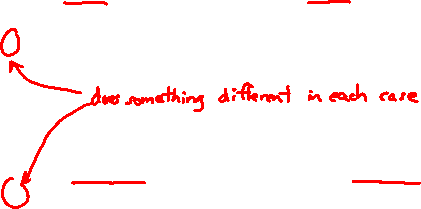 does something different in each case